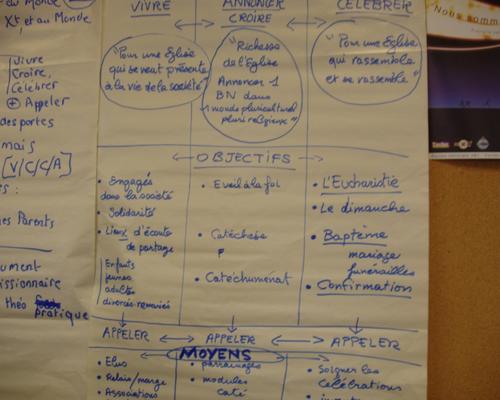 du Monde
Xt et au Monde
Vivre
Croire,
Célébrer
⊕ Appeler
des portes
mais
[V/C/C/A]
es Parents
ument
issionnaire
théo
pratique
VIVRE
"Pour une Eglise
qui se veut présente
à la vie de la société"
ANNONCER
CROIRE
"Richesse
de l'Eglise
Annoncer 1
BN dans
1 monde pluriculturel
pluri religieux"
CELEBRER
"Pour une Eglise
qui rassemble
et se rassemble"
OBJECTIFS
• Engagés
dans la société
• Solidarité
• Lieux d'écoute
de partage
Enfants
jeunes
adultes
divorcés-remariés
• Eveil à la foi
• Catéchèse
F
• Catéchuménat
• L'Eucharistie
• Le dimanche
• Baptême
mariage
funérailles
• Confirmation
APPELER
APPELER
APPELER
MOYENS
• Elus
• Relais/marge
• Associations
• parrainages
• modules
caté
• Soigner les
célébrations
Nous somm